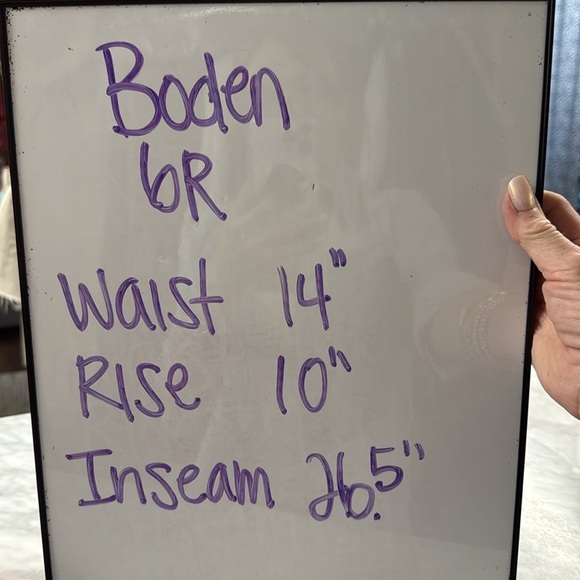 Boden
6R
Waist 14"
Rise 10"
Inseam 26.5"